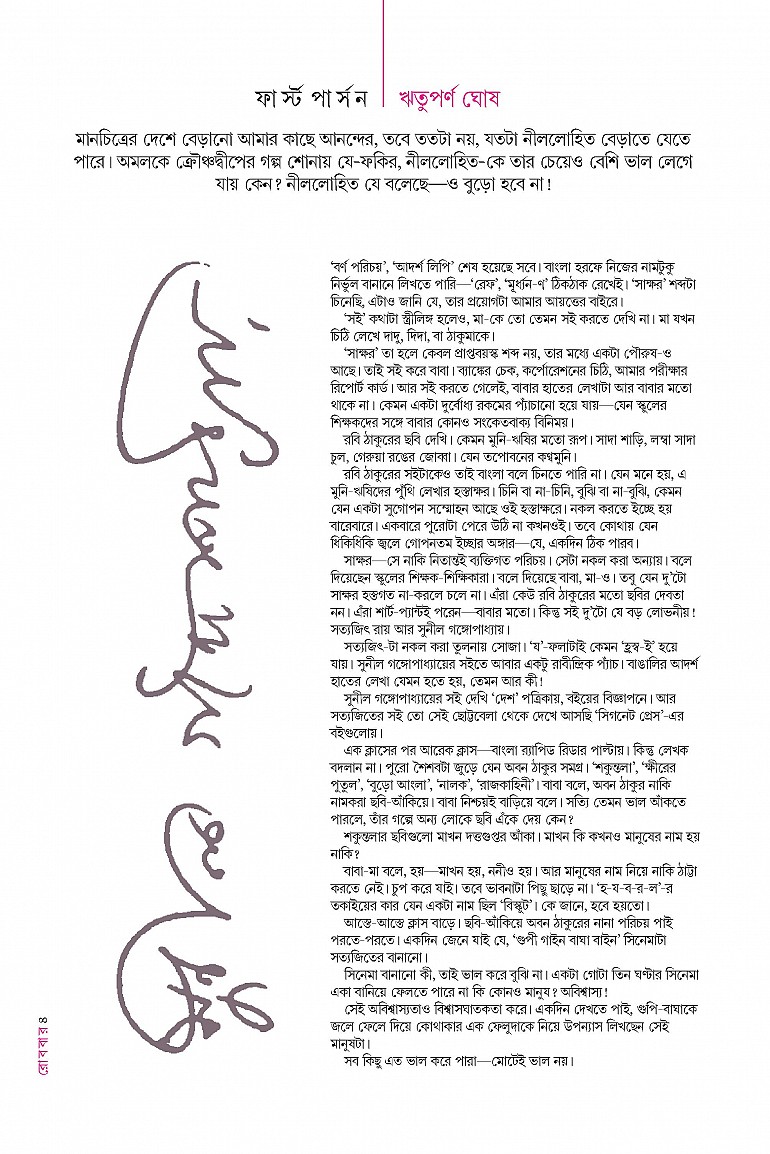 ফার্স্ট পার্সন ঋতুপর্ণ ঘোষ
মানচিত্রের দেশে বেড়ানো আমার কাছে আনন্দের, তবে ততটা নয়, যতটা নীললোহিত বেড়াতে যেতে
পারে। অমলকে ক্রৌঞ্চদ্বীপের গল্প শোনায় যে-ফকির, নীললোহিত-কে তার চেয়েও বেশি ভাল লেগে
যায় কেন? নীললোহিত যে বলেছে—ও বুড়ো হবে না!
'বর্ণ পরিচয়', 'আদর্শ লিপি' শেষ হয়েছে সবে। বাংলা হরফে নিজের নামটুকু
নির্ভুল বানানে লিখতে পারি—'রেফ', 'মূর্ধ্যন-ণ' ঠিকঠাক রেখেই। 'সাক্ষর' শব্দটা
চিনেছি, এটাও জানি যে, তার প্রয়োগটা আমার আয়ত্তের বাইরে।
'সই' কথাটা স্ত্রীলিঙ্গ হলেও, মা-কে তো তেমন সই করতে দেখি না। মা যখন
চিঠি লেখে দাদু, দিদা, বা ঠাকুমাকে।
'সাক্ষর' তা হলে কেবল প্রাপ্তবয়স্ক শব্দ নয়, তার মধ্যে একটা পৌরুষ-ও
আছে। তাই সই করে বাবা। ব্যাঙ্কের চেক, কর্পোরেশনের চিঠি, আমার পরীক্ষার
রিপোর্ট কার্ড। আর সই করতে গেলেই, বাবার হাতের লেখাটা আর বাবার মতো
থাকে না। কেমন একটা দুর্বোধ্য রকমের প্যাঁচানো হয়ে যায়—যেন স্কুলের
শিক্ষকদের সঙ্গে বাবার কোনও সংকেতবাক্য বিনিময়।
রবি ঠাকুরের ছবি দেখি। কেমন মুনি-ঋষির মতো রূপ। সাদা শাড়ি, লম্বা সাদা
চুল, গেরুয়া রঙের জোব্বা। যেন তপোবনের কণ্বমুনি।
রবি ঠাকুরের সইটাকেও তাই বাংলা বলে চিনতে পারি না। যেন মনে হয়, এ
মুনি-ঋষিদের পুঁথি লেখার হস্তাক্ষর। চিনি বা না-চিনি, বুঝি বা না-বুঝি, কেমন
যেন একটা সুগোপন সম্মোহন আছে ওই হস্তাক্ষরে। নকল করতে ইচ্ছে হয়
বারেবারে। একবারে পুরোটা পেরে উঠি না কখনওই। তবে কোথায় যেন
ধিকিধিকি জ্বলে গোপনতম ইচ্ছার অঙ্গার—যে, একদিন ঠিক পারব।
সাক্ষর—সে নাকি নিতান্তই ব্যক্তিগত পরিচয়। সেটা নকল করা অন্যায়। বলে
দিয়েছেন স্কুলের শিক্ষক-শিক্ষিকারা। বলে দিয়েছে বাবা, মা-ও। তবু যেন দু'টো
সাক্ষর হস্তগত না-করলে চলে না। এঁরা কেউ রবি ঠাকুরের মতো ছবির দেবতা
নন। এঁরা শার্ট-প্যান্টই পরেন—বাবার মতো। কিন্তু সই দু'টো যে বড় লোভনীয়!
সত্যজিৎ রায় আর সুনীল গঙ্গোপাধ্যায়।
সত্যজিৎ-টা নকল করা তুলনায় সোজা। 'য'-ফলাটাই কেমন 'হ্রস্ব-ই' হয়ে
যায়। সুনীল গঙ্গোপাধ্যায়ের সইতে আবার একটু রাবীন্দ্রিক প্যাঁচ। বাঙালির আদর্শ
হাতের লেখা যেমন হতে হয়, তেমন আর কী!
সুনীল গঙ্গোপাধ্যায়ের সই দেখি 'দেশ' পত্রিকায়, বইয়ের বিজ্ঞাপনে। আর
সত্যজিতের সই তো সেই ছোট্টবেলা থেকে দেখে আসছি 'সিগনেট প্রেস'-এর
বইগুলোয়।
এক ক্লাসের পর আরেক ক্লাস—বাংলা র‍্যাপিড রিডার পাল্টায়। কিন্তু লেখক
বদলান না। পুরো শৈশবটা জুড়ে যেন অবন ঠাকুর সমগ্র। 'শকুন্তলা', 'ক্ষীরের
পুতুল', 'বুড়ো আংলা', 'নালক', 'রাজকাহিনী'। বাবা বলে, অবন ঠাকুর নাকি
নামকরা ছবি-আঁকিয়ে। বাবা নিশ্চয়ই বাড়িয়ে বলে। সত্যি তেমন ভাল আঁকতে
পারলে, তাঁর গল্পে অন্য লোকে ছবি এঁকে দেয় কেন?
শকুন্তলার ছবিগুলো মাখন দত্তগুপ্তর আঁকা। মাখন কি কখনও মানুষের নাম হয়
নাকি?
বাবা-মা বলে, হয়—মাখন হয়, ননীও হয়। আর মানুষের নাম নিয়ে নাকি ঠাট্টা
করতে নেই। চুপ করে যাই। তবে ভাবনাটা পিছু ছাড়ে না। 'হ-য-ব-র-ল'-র
তকাইয়ের কার যেন একটা নাম ছিল 'বিস্কুট'। কে জানে, হবে হয়তো।
আস্তে-আস্তে ক্লাস বাড়ে। ছবি-আঁকিয়ে অবন ঠাকুরের নানা পরিচয় পাই
পরতে-পরতে। একদিন জেনে যাই যে, 'গুপী গাইন বাঘা বাইন' সিনেমাটা
সত্যজিতের বানানো।
সিনেমা বানানো কী, তাই ভাল করে বুঝি না। একটা গোটা তিন ঘণ্টার সিনেমা
একা বানিয়ে ফেলতে পারে না কি কোনও মানুষ? অবিশ্বাস্য!
সেই অবিশ্বাস্যতাও বিশ্বাসঘাতকতা করে। একদিন দেখতে পাই, গুপি-বাঘাকে
জলে ফেলে দিয়ে কোথাকার এক ফেলুদাকে নিয়ে উপন্যাস লিখছেন সেই
মানুষটা।
সব কিছু এত ভাল করে পারা—মোটেই ভাল নয়।
রোববার ৪